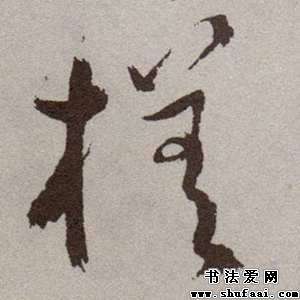 樣
书法爱网
www.shufaai.com